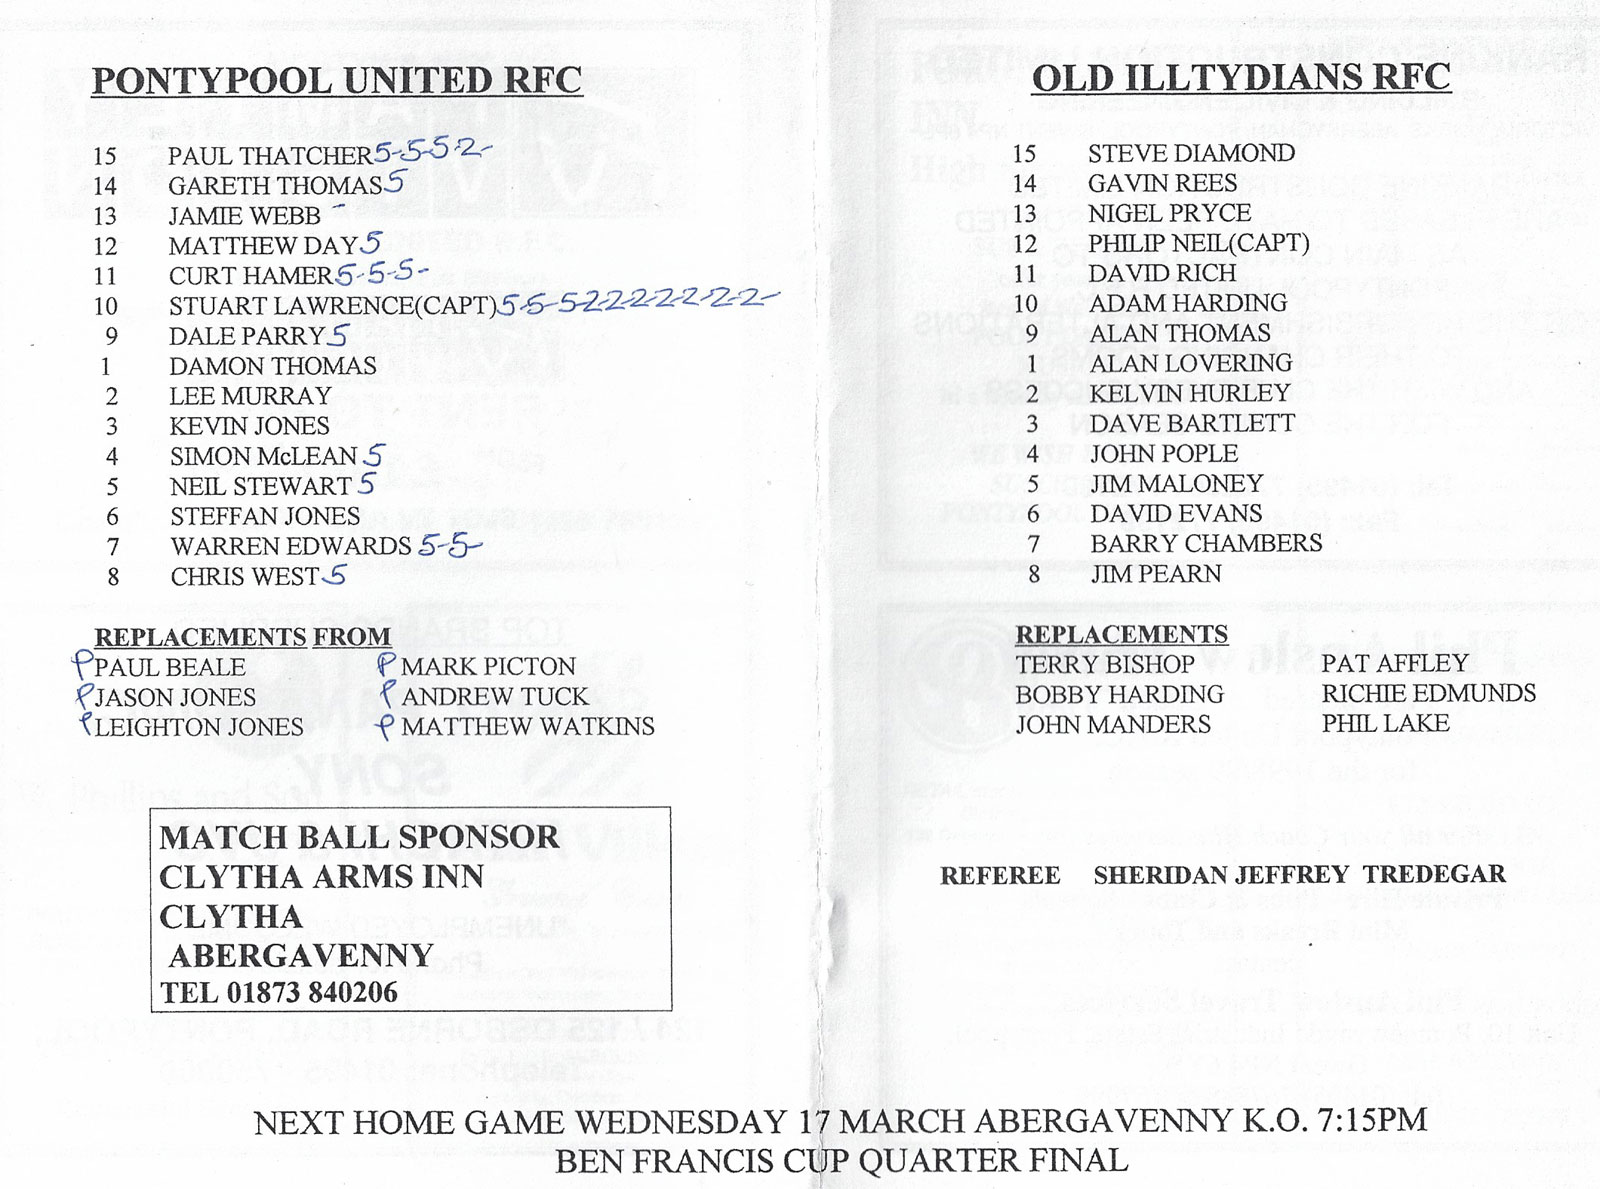 PONTYPOOL UNITED RFC
15 PAUL THATCHER 5-5-5-2-
14 GARETH THOMAS 5
13 JAMIE WEBB -
12 MATTHEW DAY 5
11 CURT HAMER 5-5-5-
10 STUART LAWRENCE(CAPT) 5-5-5-2-2-2-2-2-2-2-
9 DALE PARRY 5
1 DAMON THOMAS
2 LEE MURRAY
3 KEVIN JONES
4 SIMON McLEAN 5
5 NEIL STEWART 5
6 STEFFAN JONES
7 WARREN EDWARDS 5-5-
8 CHRIS WEST 5
REPLACEMENTS FROM
P PAUL BEALE P MARK PICTON
P JASON JONES P ANDREW TUCK
P LEIGHTON JONES P MATTHEW WATKINS
MATCH BALL SPONSOR
CLYTHA ARMS INN
CLYTHA
ABERGAVENNY
TEL 01873 840206
OLD ILLTYDIANS RFC
15 STEVE DIAMOND
14 GAVIN REES
13 NIGEL PRYCE
12 PHILIP NEIL(CAPT)
11 DAVID RICH
10 ADAM HARDING
9 ALAN THOMAS
1 ALAN LOVERING
2 KELVIN HURLEY
3 DAVE BARTLETT
4 JOHN POPLE
5 JIM MALONEY
6 DAVID EVANS
7 BARRY CHAMBERS
8 JIM PEARN
REPLACEMENTS
TERRY BISHOP PAT AFFLEY
BOBBY HARDING RICHIE EDMUNDS
JOHN MANDERS PHIL LAKE
REFEREE SHERIDAN JEFFREY TREDEGAR
NEXT HOME GAME WEDNESDAY 17 MARCH ABERGAVENNY K.O. 7:15PM
BEN FRANCIS CUP QUARTER FINAL